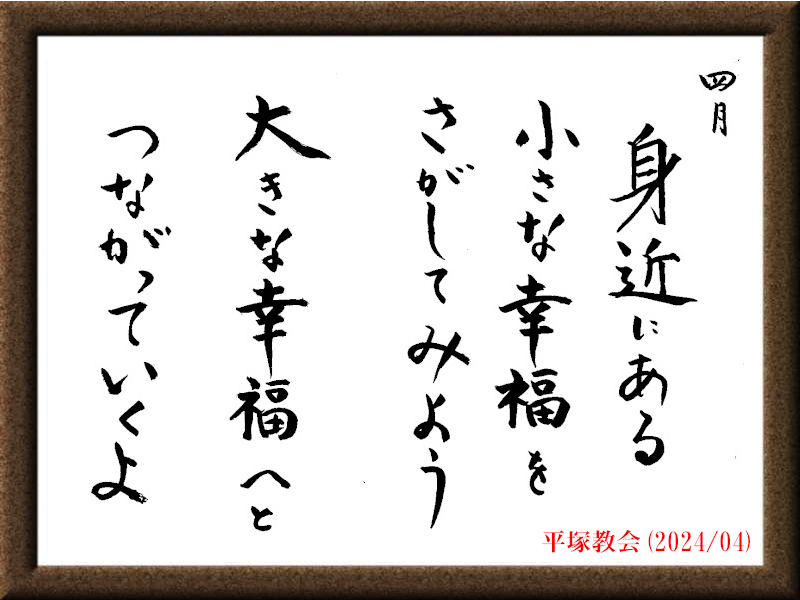 四月
身近にある
小さな幸福を
さがしてみよう
大きな幸福へと
つながっていくよ
平塚教会(2024/04)